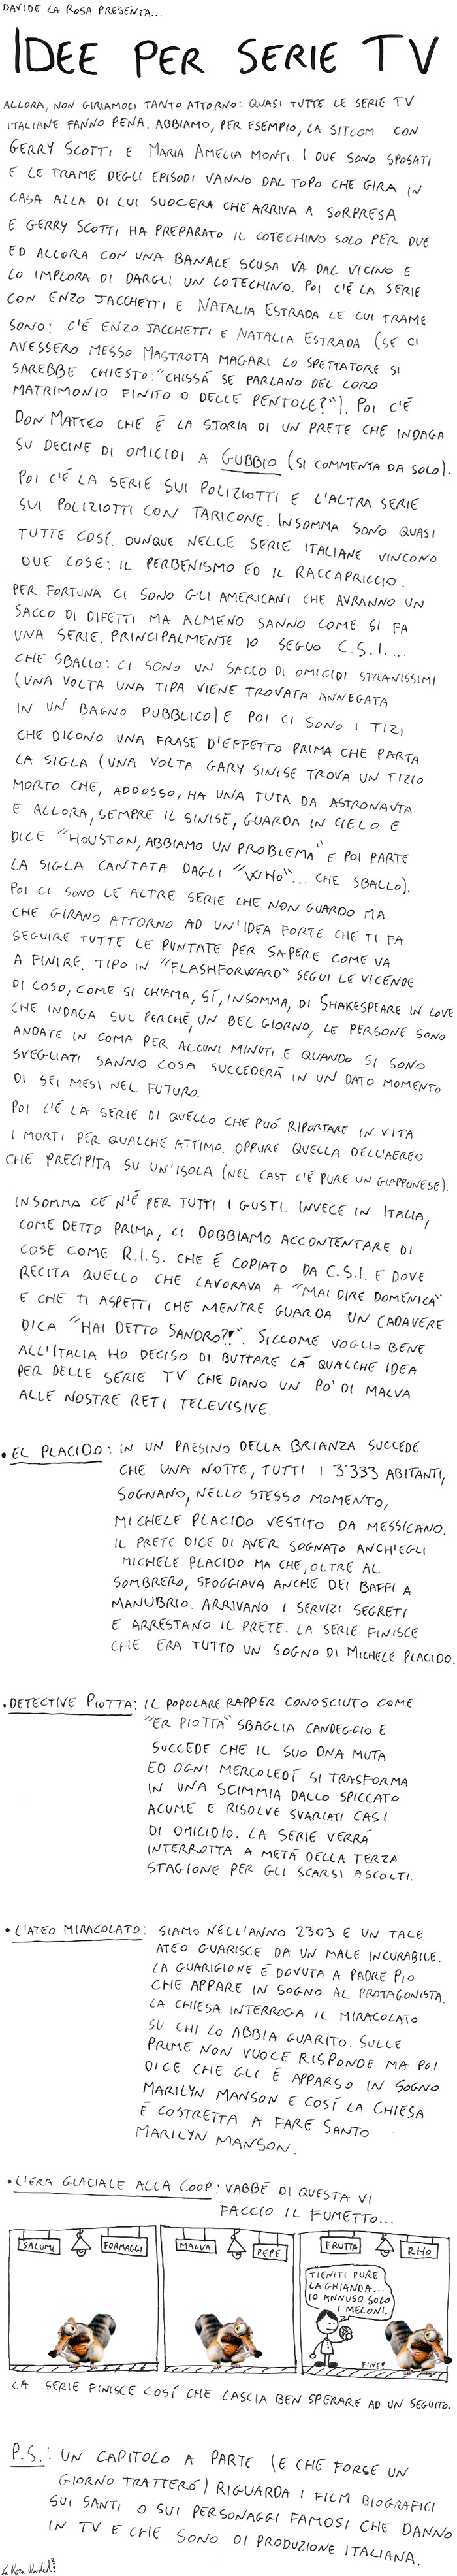 DAVIDE LA ROSA PRESENTA...
IDEE PER SERIE TV
ALLORA, NON GIRIAMOCI TANTO ATTORNO: QUASI TUTTE LE SERIE TV
ITALIANE FANNO PENA. ABBIAMO, PER ESEMPIO, LA SITCOM CON
GERRY SCOTTI E MARIA AMELIA MONTI. I DUE SONO SPOSATI
E LE TRAME DEGLI EPISODI VANNO DAL TOPO CHE GIRA IN
CASA ALLA DI LUI SUOCERA CHE ARRIVA A SORPRESA
E GERRY SCOTTI HA PREPARATO IL COTECHINO SOLO PER DUE
ED ALLORA CON UNA BANALE SCUSA VA DAL VICINO E
LO IMPLORA DI DARGLI UN COTECHINO. POI C'É LA SERIE
CON ENZO JACCHETTI E NATALIA ESTRADA LE CUI TRAME
SONO: C'É ENZO JACCHETTI E NATALIA ESTRADA (SE CI
AVESSERO MESSO MASTROTA MAGARI LO SPETTATORE SI
SAREBBE CHIESTO: "CHISSÁ SE PARLANO DEL LORO
MATRIMONIO FINITO O DELLE PENTOLE?"). POI C'É
DON MATTEO CHE É LA STORIA DI UN PRETE CHE INDAGA
SU DECINE DI OMICIDI A GUBBIO (SI COMMENTA DA SOLO).
POI C'É LA SERIE SUI POLIZIOTTI E L'ALTRA SERIE
SUI POLIZIOTTI CON TARICONE. INSOMMA SONO QUASI
TUTTE COSÍ. DUNQUE NELLE SERIE ITALIANE VINCONO
DUE COSE: IL PERBENISMO ED IL RACCAPRICCIO.
PER FORTUNA CI SONO GLI AMERICANI CHE AVRANNO UN
SACCO DI DIFETTI MA ALMENO SANNO COME SI FA
UNA SERIE. PRINCIPALMENTE IO SEGUO C.S.I....
CHE SBALLO: CI SONO UN SACCO DI OMICIDI STRANISSIMI
(UNA VOLTA UNA TIPA VIENE TROVATA ANNEGATA
IN UN BAGNO PUBBLICO) E POI CI SONO I TIZI
CHE DICONO UNA FRASE D'EFFETTO PRIMA CHE PARTA
LA SIGLA (UNA VOLTA GARY SINISE TROVA UN TIZIO
MORTO CHE, ADDOSSO, HA UNA TUTA DA ASTRONAUTA
E ALLORA, SEMPRE IL SINISE, GUARDA IN CIELO E
DICE "HOUSTON, ABBIAMO UN PROBLEMA" E POI PARTE
LA SIGLA CANTATA DAGLI "WHO"... CHE SBALLO).
POI CI SONO LE ALTRE SERIE CHE NON GUARDO MA
CHE GIRANO ATTORNO AD UN'IDEA FORTE CHE TI FA
SEGUIRE TUTTE LE PUNTATE PER SAPERE COME VA
A FINIRE. TIPO IN "FLASHFORWARD" SEGUI LE VICENDE
DI COSO, COME SI CHIAMA, SÍ, INSOMMA, DI SHAKESPEARE IN LOVE
CHE INDAGA SUL PERCHÉ, UN BEL GIORNO, LE PERSONE SONO
ANDATE IN COMA PER ALCUNI MINUTI E QUANDO SI SONO
SVEGLIATI SANNO COSA SUCCEDERÁ IN UN DATO MOMENTO
DI SEI MESI NEL FUTURO.
POI C'É LA SERIE DI QUELLO CHE PUÓ RIPORTARE IN VITA
I MORTI PER QUALCHE ATTIMO. OPPURE QUELLA DELL'AEREO
CHE PRECIPITA SU UN'ISOLA (NEL CAST C'É PURE UN GIAPPONESE).
INSOMMA CE N'É PER TUTTI I GUSTI. INVECE IN ITALIA,
COME DETTO PRIMA, CI DOBBIAMO ACCONTENTARE DI
COSE COME R.I.S. CHE É COPIATO DA C.S.I. E DOVE
RECITA QUELLO CHE LAVORAVA A "MAI DIRE DOMENICA"
E CHE TI ASPETTI CHE MENTRE GUARDA UN CADAVERE
DICA "HAI DETTO SANDRO?!". SICCOME VOGLIO BENE
ALL'ITALIA HO DECISO DI BUTTARE LÁ QUALCHE IDEA
PER DELLE SERIE TV CHE DIANO UN PO' DI MALVA
ALLE NOSTRE RETI TELEVISIVE.
• EL PLACIDO: IN UN PAESINO DELLA BRIANZA SUCCEDE
CHE UNA NOTTE, TUTTI I 3'333 ABITANTI,
SOGNANO, NELLO STESSO MOMENTO,
MICHELE PLACIDO VESTITO DA MESSICANO.
IL PRETE DICE DI AVER SOGNATO ANCH'EGLI
MICHELE PLACIDO MA CHE, OLTRE AL
SOMBRERO, SFOGGIAVA ANCHE DEI BAFFI A
MANUBRIO. ARRIVANO I SERVIZI SEGRETI
E ARRESTANO IL PRETE. LA SERIE FINISCE
CHE ERA TUTTO UN SOGNO DI MICHELE PLACIDO.
• DETECTIVE PIOTTA: IL POPOLARE RAPPER CONOSCIUTO COME
"ER PIOTTA" SBAGLIA CANDEGGIO E
SUCCEDE CHE IL SUO DNA MUTA
ED OGNI MERCOLEDÍ SI TRASFORMA
IN UNA SCIMMIA DALLO SPICCATO
ACUME E RISOLVE SVARIATI CASI
DI OMICIDIO. LA SERIE VERRÁ
INTERROTTA A METÁ DELLA TERZA
STAGIONE PER GLI SCARSI ASCOLTI.
• L'ATEO MIRACOLATO: SIAMO NELL'ANNO 2303 E UN TALE
ATEO GUARISCE DA UN MALE INCURABILE.
LA GUARIGIONE É DOVUTA A PADRE PIO
CHE APPARE IN SOGNO AL PROTAGONISTA.
LA CHIESA INTERROGA IL MIRACOLATO
SU CHI LO ABBIA GUARITO. SULLE
PRIME NON VUOLE RISPONDE MA POI
DICE CHE GLI É APPARSO IN SOGNO
MARILYN MANSON E COSÍ LA CHIESA
É COSTRETTA A FARE SANTO
MARILYN MANSON.
• L'ERA GLACIALE ALLA COOP: VABBÉ DI QUESTA VI
FACCIO IL FUMETTO...
SALUMI
FORMAGGI
MALVA
PEPE
FRUTTA
RHO
TIENITI PURE
LA GHIANDA...
IO ANNUSO SOLO
I MELONI.
FINE!
LA SERIE FINISCE COSÍ CHE LASCIA BEN SPERARE AD UN SEGUITO.
P.S.: UN CAPITOLO A PARTE (E CHE FORSE UN
GIORNO TRATTERÓ) RIGUARDA I FILM BIOGRAFICI
SUI SANTI O SUI PERSONAGGI FAMOSI CHE DANNO
IN TV E CHE SONO DI PRODUZIONE ITALIANA.
La Rosa Davide